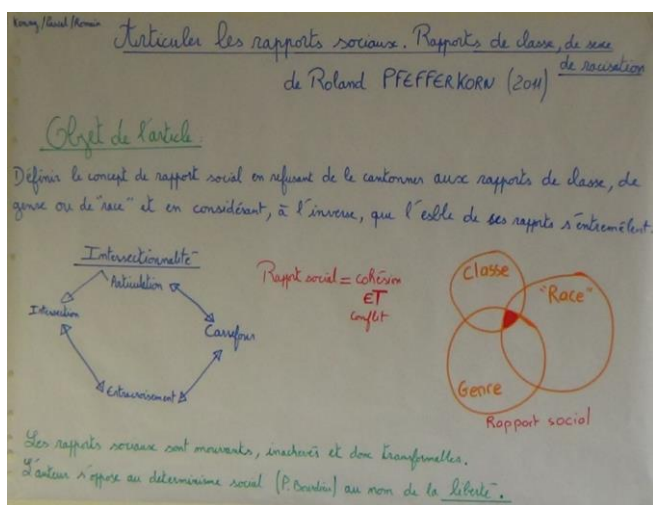 /Pascal/Romain
Articuler les rapports sociaux. Rapports de classe, de sexe
de racisation
de Roland PFEFFERKORN (2011)
Objet de l'article :
Définir le concept de rapport social en refusant de le cantonner aux rapports de classe, de
genre ou de "race" et en considérant, à l'inverse, que l'esble de ses rapports s'entremêlent.
Intersectionnalité
Articulation
Intersection
Carrefour
Entrecroisement
Rapport social = cohésion
ET
conflit
Classe
"Race"
Genre
Rapport social
Les rapports sociaux sont mouvants, inachevés et donc transformables.
L'auteur s'oppose au déterminisme social (P. Bourdieu) au nom de la liberté.